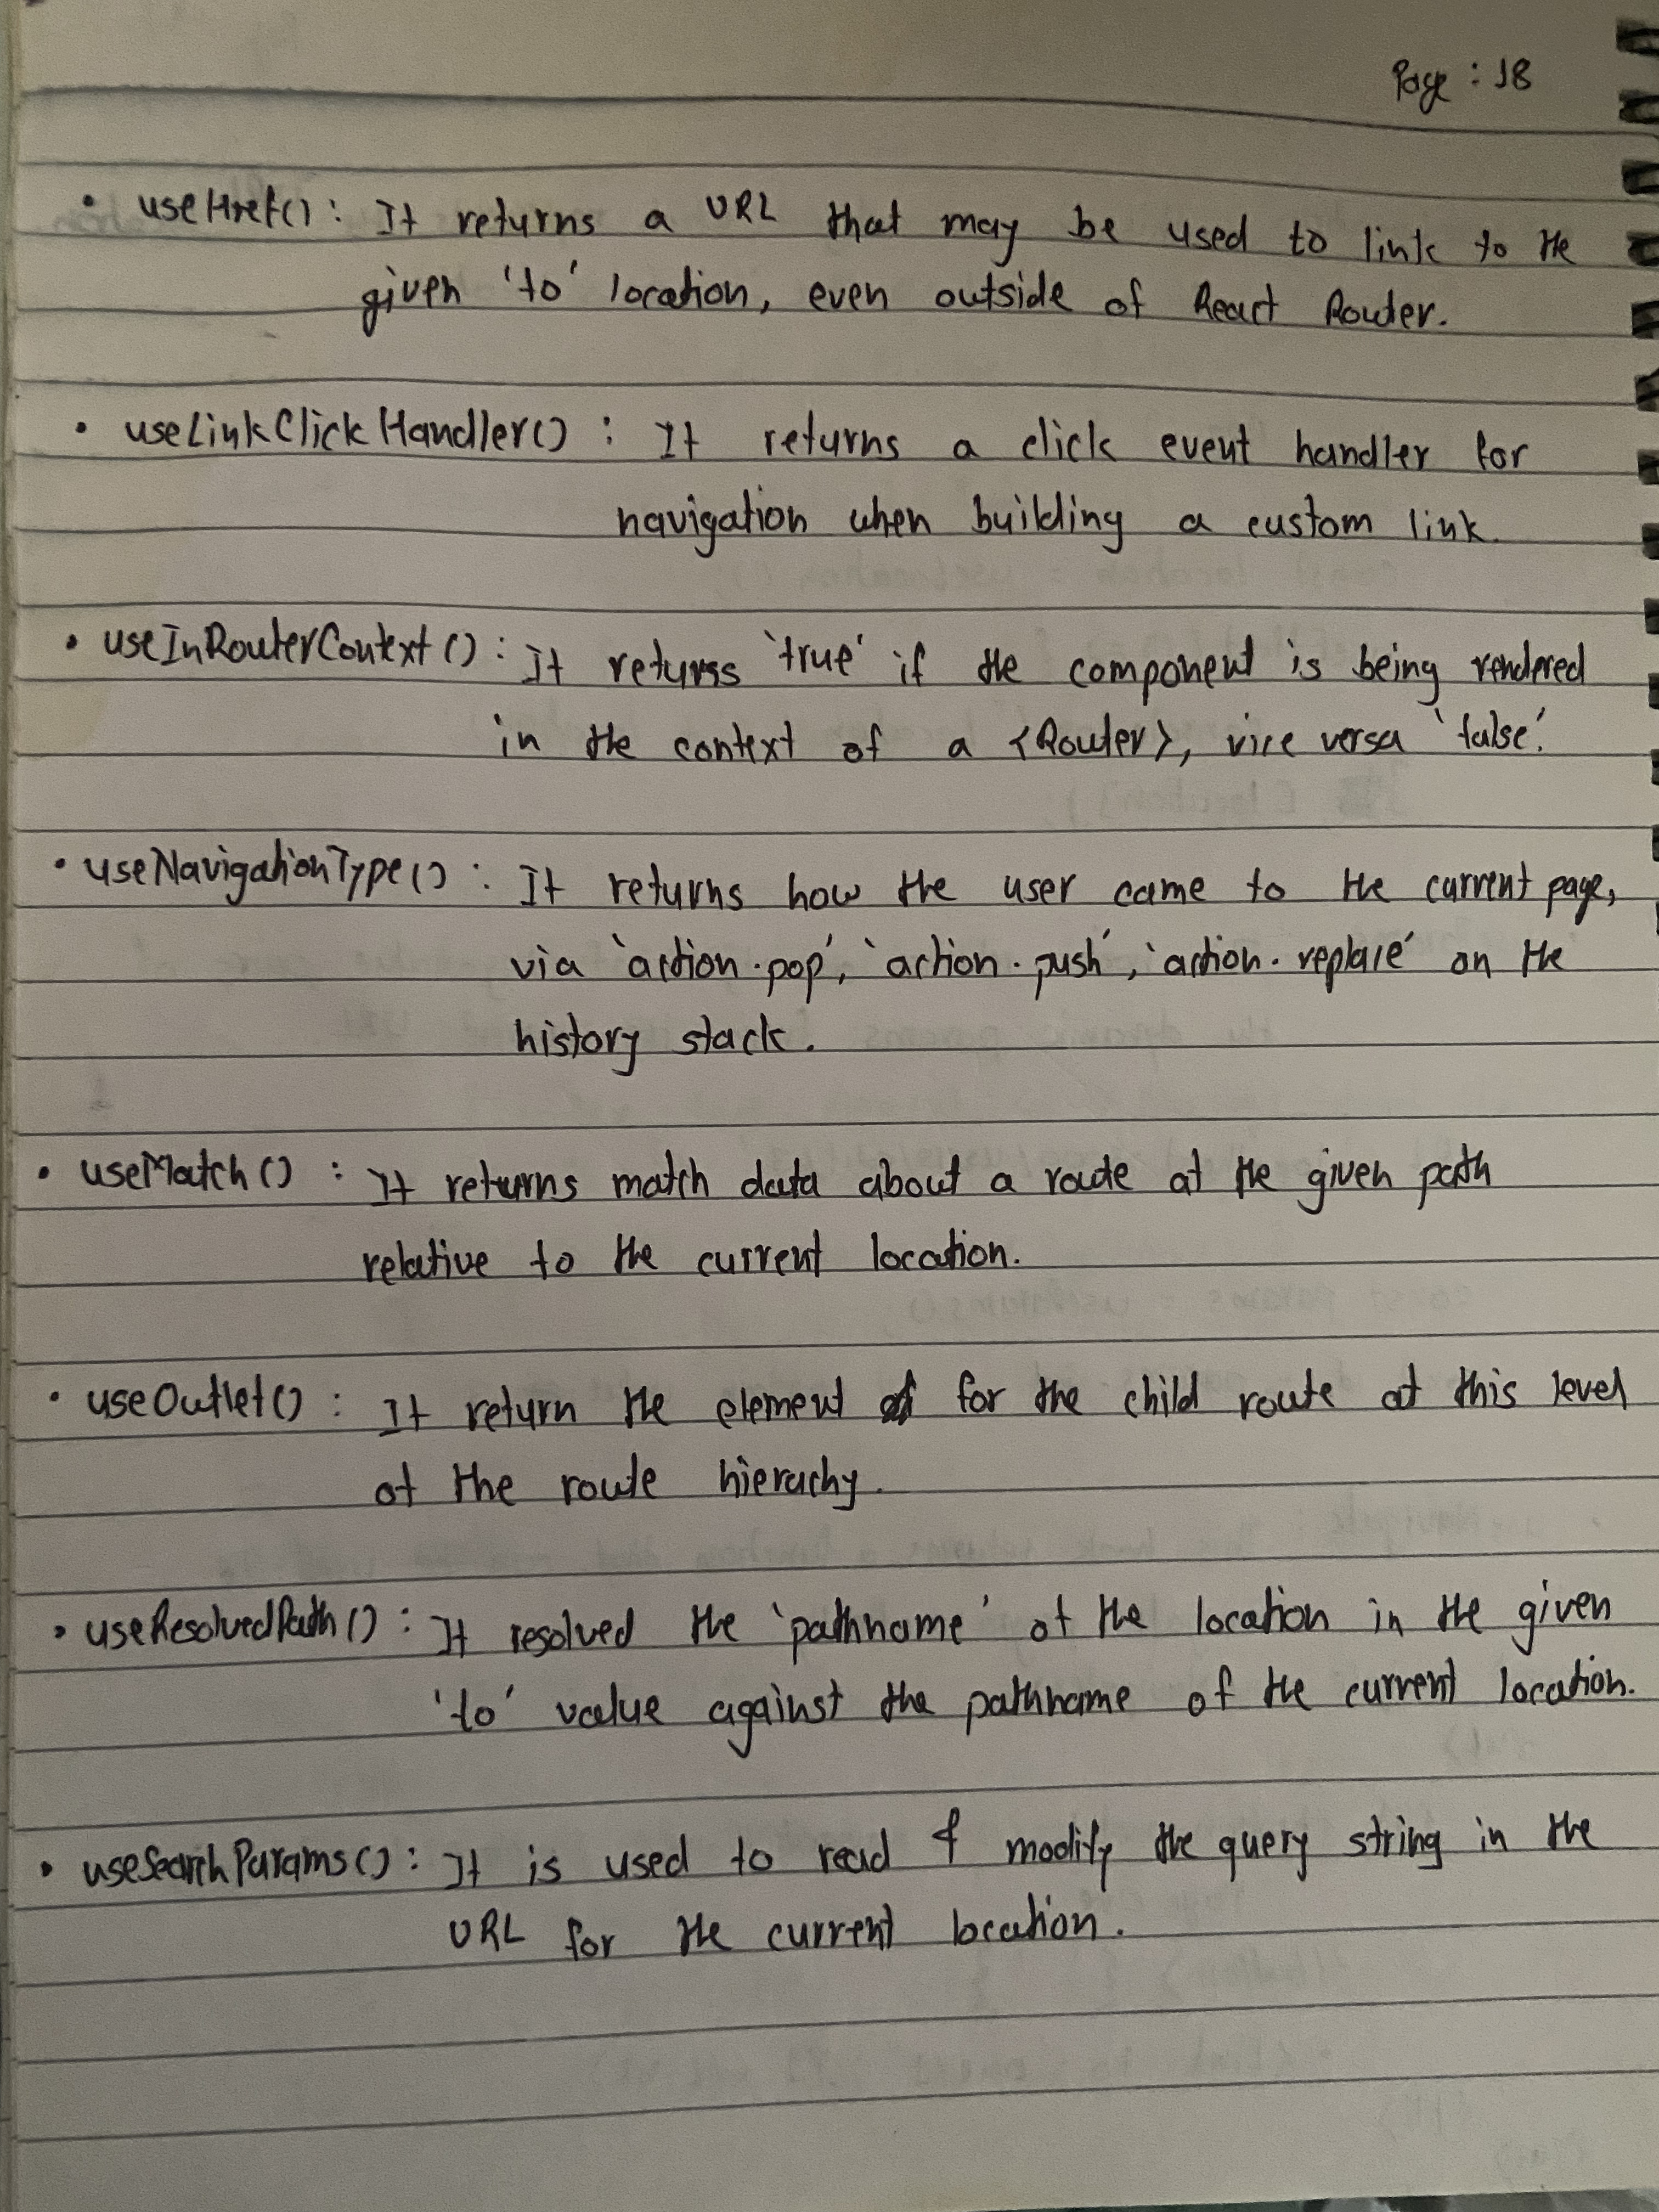 Page : 18
• useHref() : It returns a URL that may be used to link to the
given 'to' location, even outside of React Router.
• useLinkClickHandler() : It returns a click event handler for
navigation when building a custom link.
• useInRouterContext() : It returns 'true' if the component is being rendered
in the context of a <Router>, vice versa 'false'.
• useNavigationType() : It returns how the user came to the current page,
via 'action.pop', 'action.push', 'action.replace' on the
history stack.
• useMatch() : It returns match data about a route at the given path
relative to the current location.
• useOutlet() : It return the element for the child route at this level
of the route hierachy.
• useResolvedPath() : It resolved the 'pathname' of the location in the given
'to' value against the pathname of the current location.
• useSearchParams() : It is used to read & modify the query string in the
URL for the current location.